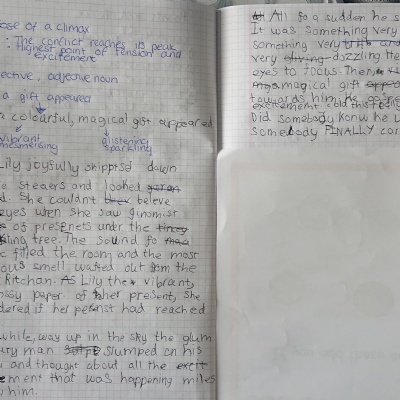 ose of a climax
: The conflict reaches its peak
Highest point of tension and
excitement
ective, adjective noun
a gift appeared
colourful, magical gist appeared
vibrant
mesmerising
glistening
sparkling
Lily joyfully skippted down
e steaers and looked
d. She couldnt beleve
eyes when she saw ginomist
s of presenets under the
ling tree. The sound fo
c filled the room and the most
ous smell wafted out from the
Kitchan. As Lily the vibrant,
ossy paper of her present, she
dered if her persnst had reached
while, way up in the sky the glum
ury man slumped on his
and thought about all the
ement that was happening miles
him.
All fo a sudden he s
It was something very
something very and
very dazzling He
eyes to focus. Then,
magical gift
towards him. He
excitement
Did somebody konw he w
Somebody FINALLY cor